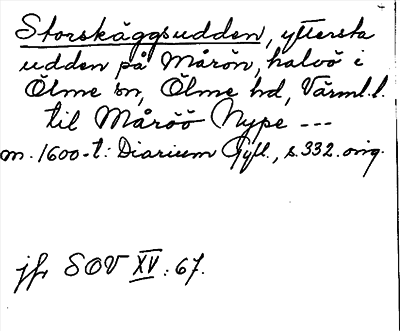 Storskäggsudden, yttersta
udden på Mårön, halvö i
Ölme sn, Ölme hd, Värml.l.
til Måröö Nype ---
m. 1600-t: Diarium Gyll., s.332.orig.
jfr SOV XV: 67.